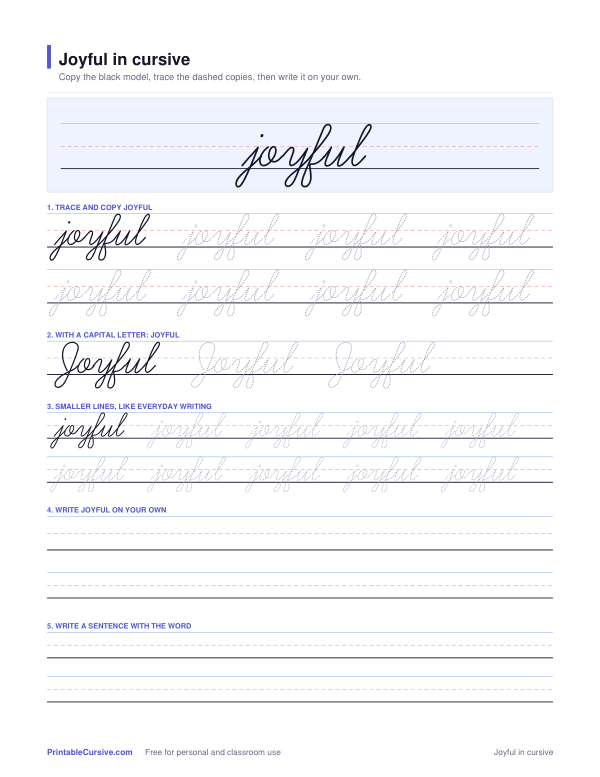 Joyful in cursive
Copy the black model, trace the dashed copies, then write it on your own.
joyful
1. TRACE AND COPY JOYFUL
joyful joyful joyful joyful
joyful joyful joyful joyful
2. WITH A CAPITAL LETTER: JOYFUL
Joyful Joyful Joyful
3. SMALLER LINES, LIKE EVERYDAY WRITING
joyful joyful joyful joyful joyful
joyful joyful joyful joyful joyful
4. WRITE JOYFUL ON YOUR OWN
5. WRITE A SENTENCE WITH THE WORD
PrintableCursive.com Free for personal and classroom use Joyful in cursive